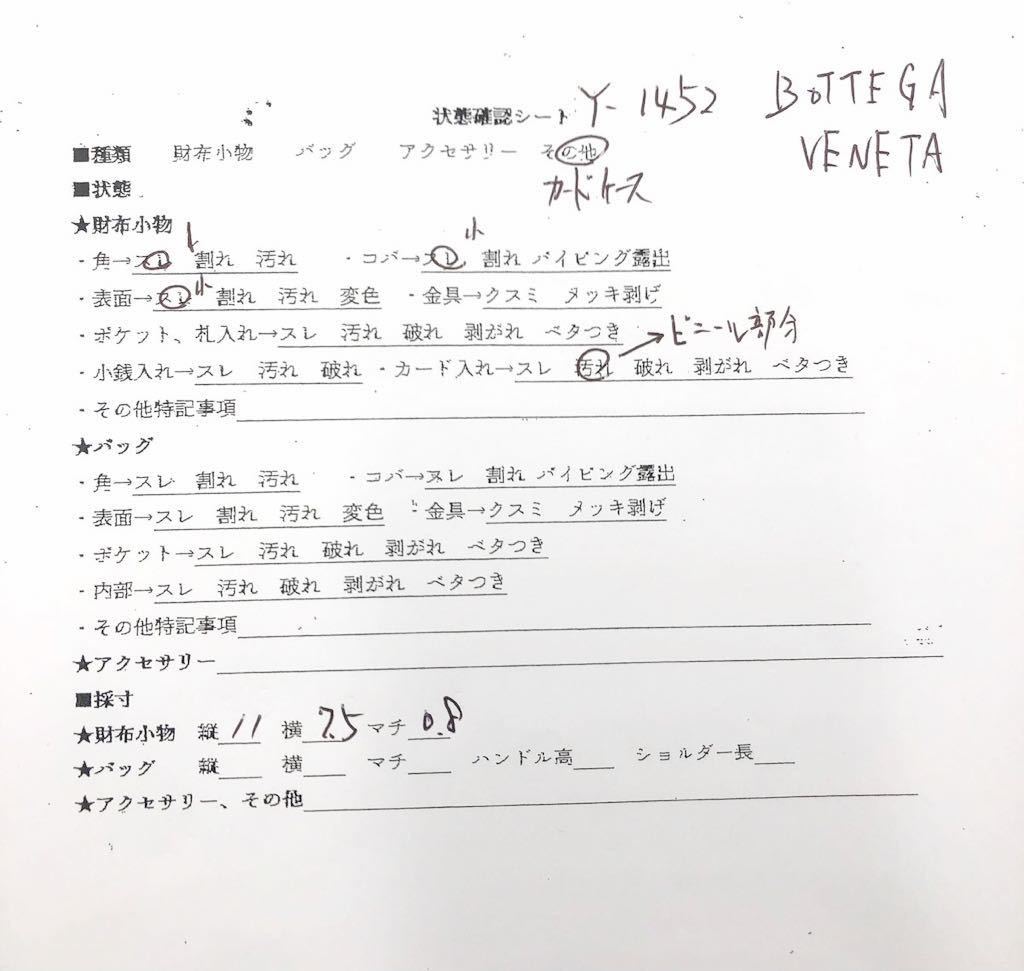 状態確認シート Y-1452 BOTTEGA
VENETA
■種類 財布小物 バッグ アクセサリー その他
カードケース
■状態
★財布小物
小
・角→スレ 割れ 汚れ ・コバ→スレ 割れ パイピング露出
小
・表面→スレ 割れ 汚れ 変色 ・金具→クスミ メッキ剥げ
・ポケット、札入れ→スレ 汚れ 破れ 剥がれ ベタつき →ビニール部分
・小銭入れ→スレ 汚れ 破れ ・カード入れ→スレ 汚れ 破れ 剥がれ ベタつき
・その他特記事項
★バッグ
・角→スレ 割れ 汚れ ・コバ→スレ 割れ パイピング露出
・表面→スレ 割れ 汚れ 変色 ・金具→クスミ メッキ剥げ
・ポケット→スレ 汚れ 破れ 剥がれ ベタつき
・内部→スレ 汚れ 破れ 剥がれ ベタつき
・その他特記事項
★アクセサリー
■採寸
★財布小物 縦 11 横 7.5 マチ 0.8
★バッグ 縦 横 マチ ハンドル高 ショルダー長
★アクセサリー、その他